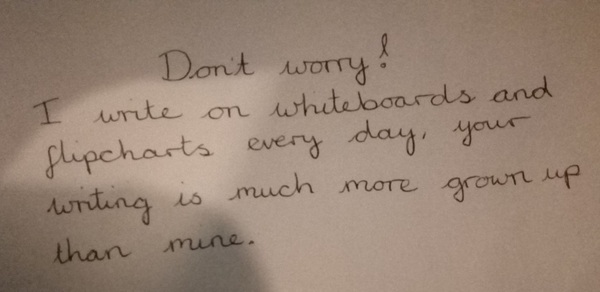 Don't worry!
I write on whiteboards and
flipcharts every day, your
writing is much more grown up
than mine.